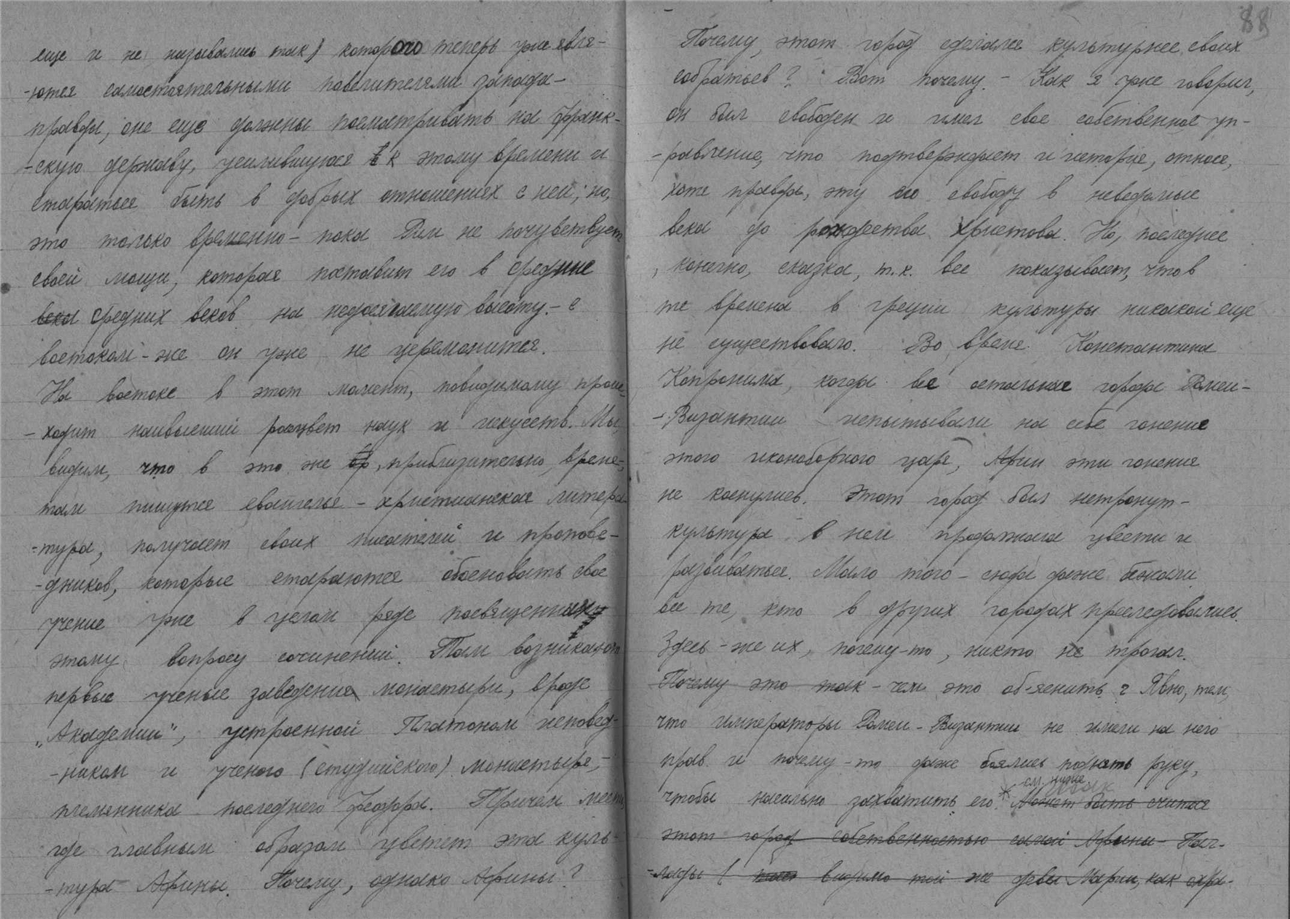 еще и не назывались так) которого теперь уже явля-
-ются самостоятельными повелителями запада-
правда, они еще должны посматривать на франк-
-скую державу, усилившуюся к этому времени и
стараться быть в добрых отношениях с ней; но,
это только временно - пока Рим не почувствует
своей мощи, которая поставит его в средние
веки средних веков на недосягаемую высоту. - с
востоком-же он уже не церемонится.
На востоке в этот момент, повидимому проис-
-ходит наивысший расцвет наук и искусств. Мы
видим, что в это же вр, приблизительно, время,
там пишутся евангелья - христианская литера-
-тура, получает своих писателей и пропове-
-дников, которые стараются обосновать свое
учение уже в целом ряде посвященных
этому вопросу сочинений. Там возникают
первые ученые заведения монастыри, вроде
„Академии", устроенной Платоном исповед-
-ником и ученого (студийского) монастыря,
племянника последнего Федора. Причем место
где главным образом цветет эта куль-
-тура Афины. Почему, однако Афины?
88
Почему, этот город сделался культурнее своих
собратьев? Вот почему. - Как я уже говорил,
он был свободен и имел свое собственное уп-
-равление, что подтверждает и история, относя,
хотя правда, эту его свободу в неведомые
века до рождества Христова. Но, последнее
, конечно, сказка, т.к. все показывает, что в
те времена в Греции культуры никакой еще
не существовало. Во время Константина
Копронима, когда все остальные города Ромеи-
-Византии испытывали на себе гонение
этого иконоборного царя, Афин эти гонения
не коснулись. Этот город был нетронут-
культура в нем продолжала цвести и
развиваться. Мало того - сюда даже бежали
все те, кто в других городах преследовались.
Здесь-же их, почему-то, никто не трогал.
Почему это так - чем это об-яснить? Явно, тем,
что императоры Ромеи-Византии не имели на него
прав и почему-то даже боялись поднять руку,
см. ниже
чтобы насильно захватить его.* Может быть считая
этот город собственностью самой Афины - Пал-
-лады ( видимо той же девы Марии, как охра-